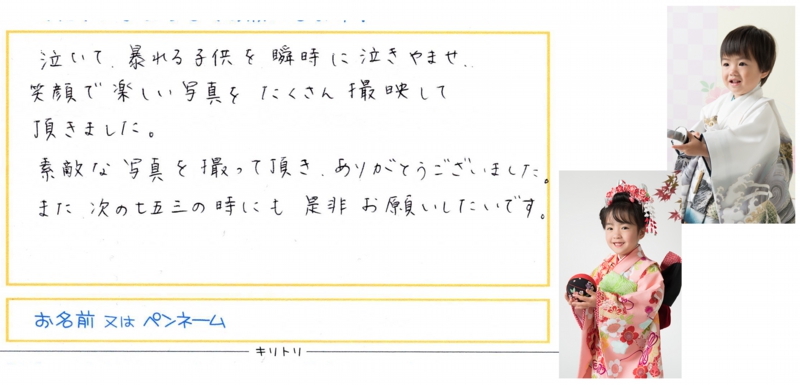 泣いて、暴れる子供を瞬時に泣きやませ、
笑顔で楽しい写真をたくさん撮映して
頂きました。
素敵な写真を撮って頂き、ありがとうございました。
また、次の七五三の時にも是非お願いしたいです。
お名前又はペンネーム
キリトリ